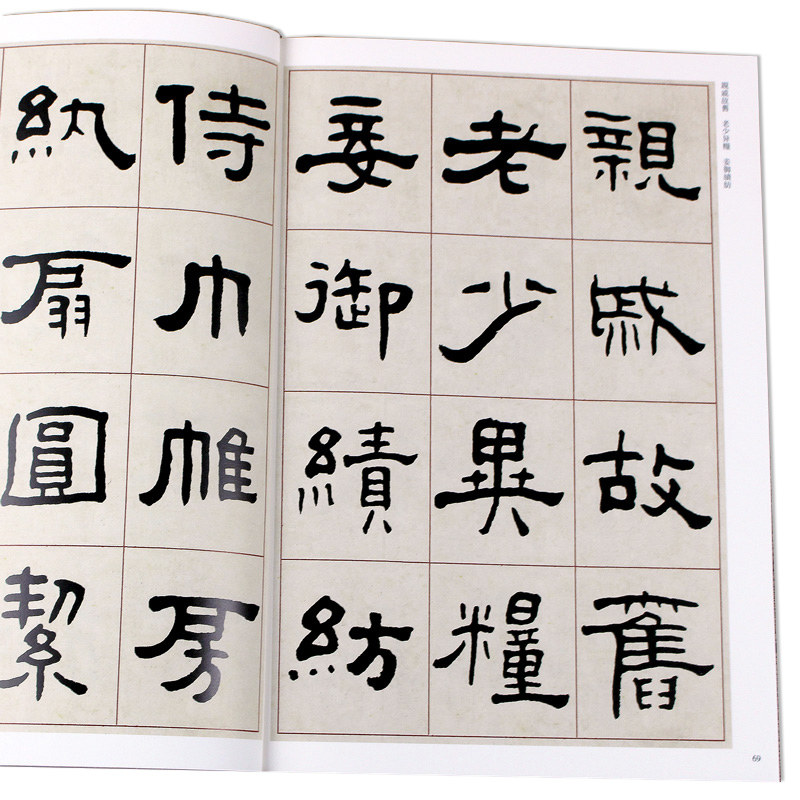 親戚故舊 老少异糧 妾御績紡
親戚故舊
老少異糧
妾御績紡
侍巾帷房
紈扇圓絜
69